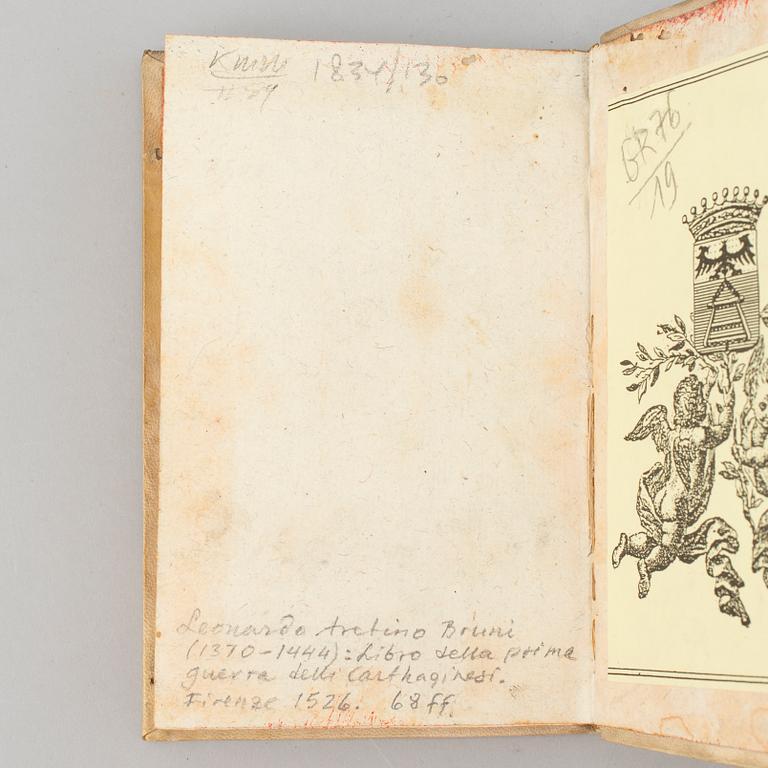 1834/130
GR 76
19
Leonardo Aretino Bruni
(1370-1444): Libro della prima
guerra delli Carthaginesi.
Firenze 1526. 68 ff.